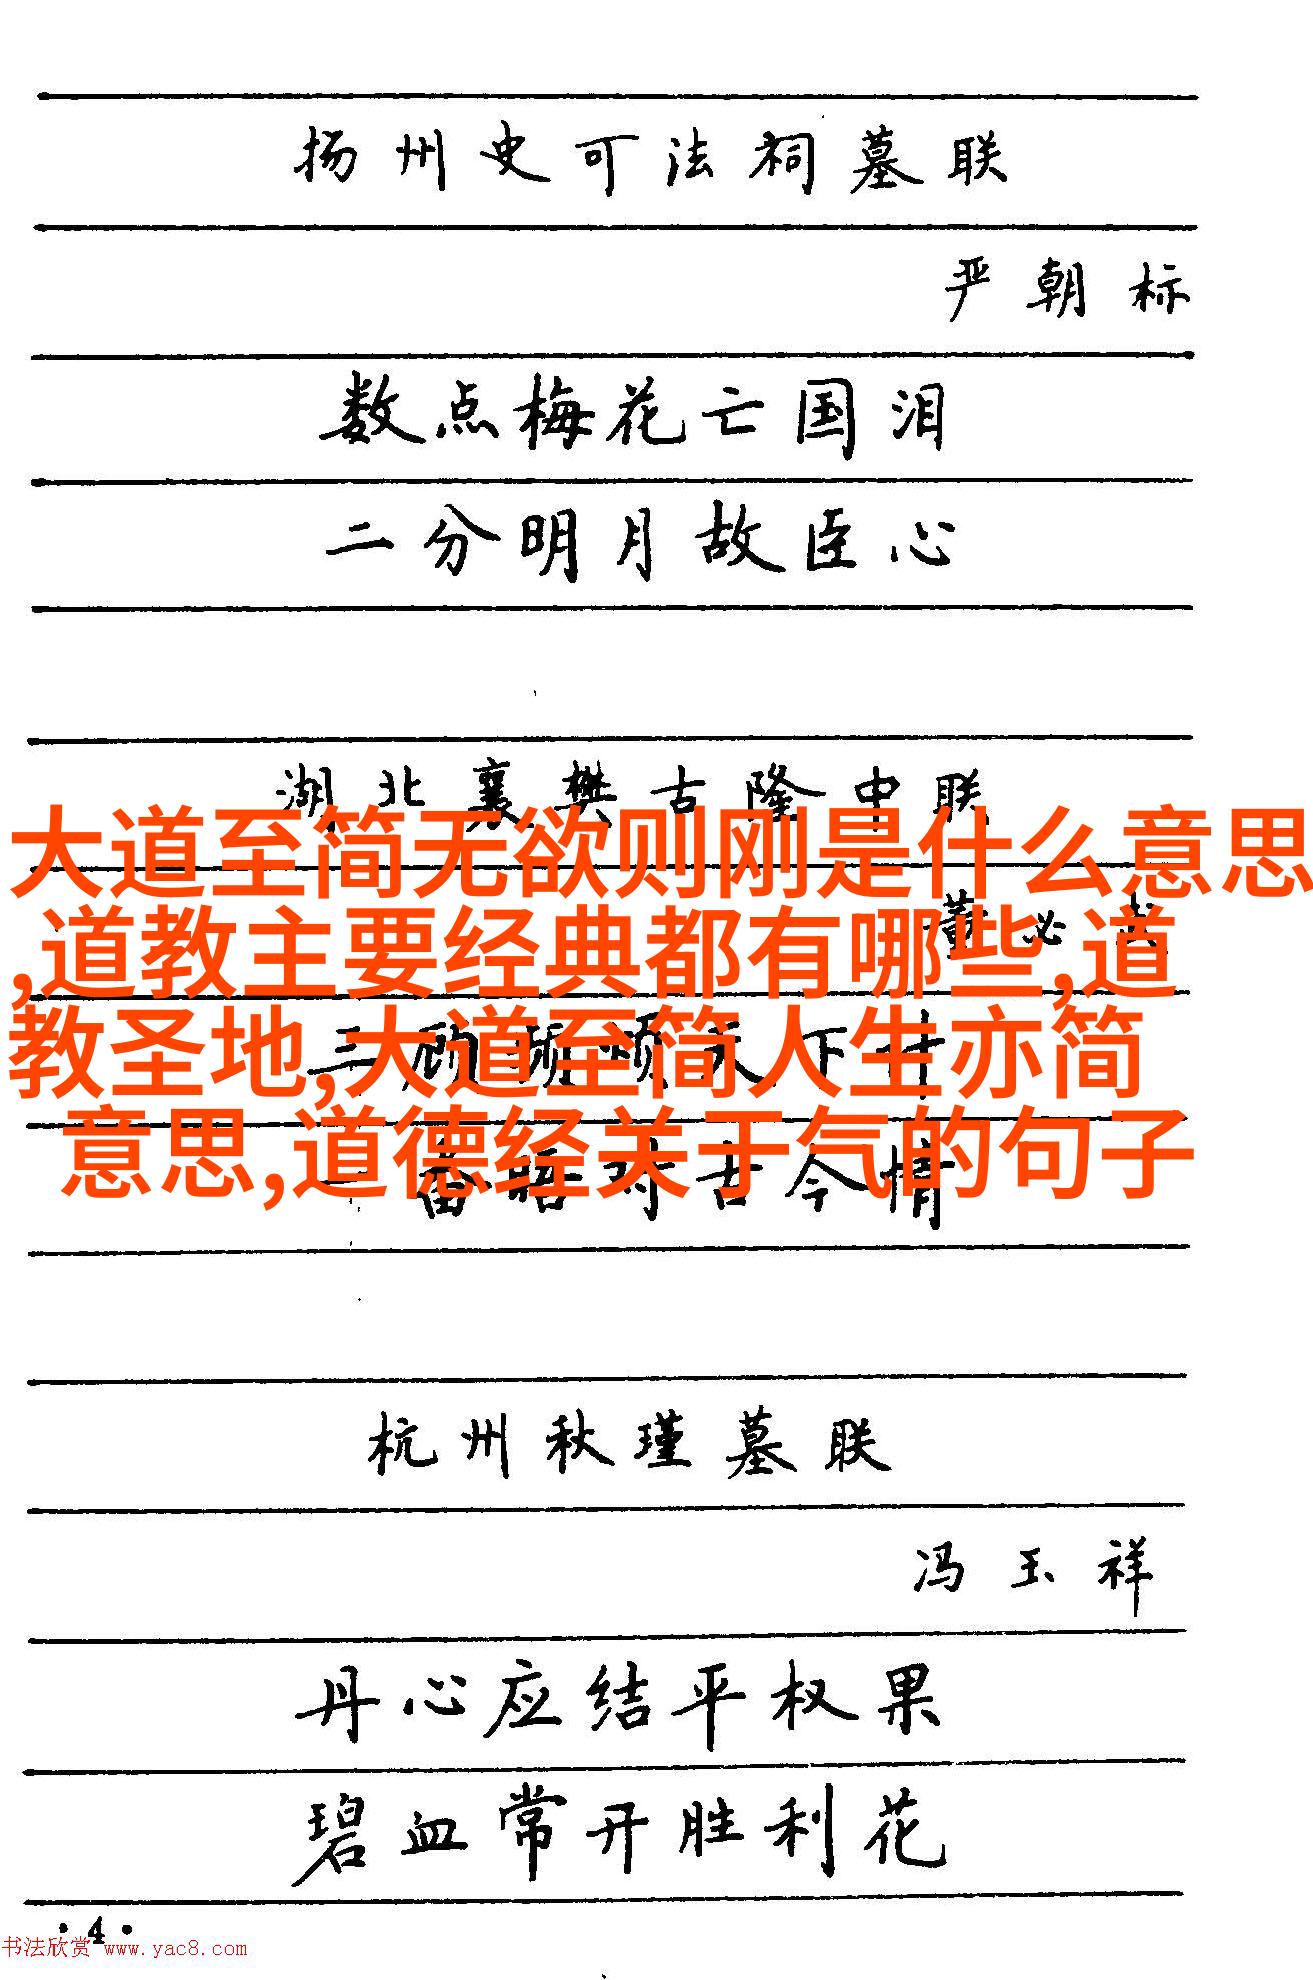 扬州史可法祠墓联
严朝标
数点梅花亡国泪
二分明月故臣心
湖北襄樊古隆中联
大道至简无欲则刚是什么意思
董必武
,道教主要经典都有哪些,道
三顾频烦天下计
教圣地,大道至简人生亦简
一番晤对古今情
意思,道德经关于气的句子
杭州秋瑾墓联
冯玉祥
丹心应结平权果
碧血常开胜利花
·4·
书法欣赏 www.yac8.com